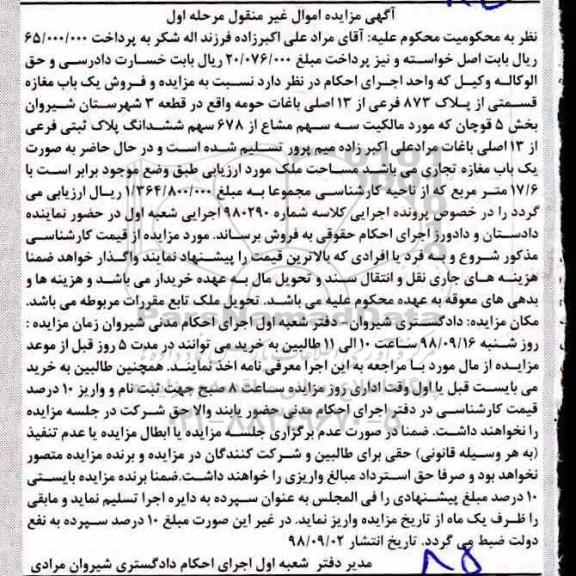 آگهی مزایده اموال غیر منقول مرحله اول
نظر به محکومیت محکوم علیه: آقای مراد علی اکبرزاده فرزند اله شکر به پرداخت ۶۵/۰۰۰/۰۰۰
ریال بابت اصل خواسته و نیز پرداخت مبلغ ۲۰/۰۷۶/۰۰۰ ریال بابت خسارت دادرسی و حق
الوکاله وکیل که واحد اجرای احکام در نظر دارد نسبت به مزایده و فروش یک باب مغازه
قسمتی از پلاک ۸۷۳ فرعی از ۱۳ اصلی باغات حومه واقع در قطعه ۳ شهرستان شیروان
بخش ۵ قوچان که مورد مالکیت سه سهم مشاع از ۶۷۸ سهم ششدانگ پلاک ثبتی فرعی
از ۱۳ اصلی باغات مرادعلی اکبر زاده میم پرور تسلیم شده است و در حال حاضر به صورت
یک باب مغازه تجاری می باشد مساحت ملک مورد ارزیابی طبق وضع موجود برابر است با
۱۷/۶ متر مربع که از ناحیه کارشناسی مجموعا به مبلغ ۱/۳۶۴/۸۰۰/۰۰۰ ریال ارزیابی می
گردد را در خصوص پرونده اجرایی کلاسه شماره ۹۸۰۲۹۰ اجرایی شعبه اول در حضور نماینده
دادستان و دادورز اجرای احکام حقوقی به فروش برساند. مورد مزایده از قیمت کارشناسی
مذکور شروع و به فرد یا افرادی که بالاترین قیمت را پیشنهاد نمایند واگذار خواهد ضمنا
هزینه های جاری نقل و انتقال سند و تحویل مال به عهده خریدار می باشد و هزینه ها و
بدهی های معوقه به عهده محکوم علیه می باشد. تحویل ملک تابع مقررات مربوطه می باشد.
مکان مزایده: دادگستری شیروان - دفتر شعبه اول اجرای احکام مدنی شیروان زمان مزایده :
روز شنبه ۹۸/۰۹/۱۶ ساعت ۱۰ الی ۱۱ طالبین به خرید می توانند در مدت ۵ روز قبل از موعد
مزایده از مال مورد با مراجعه به این اجرا معرفی نامه اخذ نمایند. همچنین طالبین به خرید
می بایست قبل یا اول وقت اداری روز مزایده ساعت ۸ صبح جهت ثبت نام و واریز ۱۰ درصد
قیمت کارشناسی در دفتر اجرای احکام مدنی حضور یابند والا حق شرکت در جلسه مزایده
را نخواهند داشت. ضمنا در صورت عدم برگزاری جلسه مزایده یا ابطال مزایده یا عدم تنفیذ
(به هر وسیله قانونی) حقی برای طالبین و شرکت کنندگان در مزایده و برنده مزایده متصور
نخواهد بود و صرفا حق استرداد مبالغ واریزی را خواهند داشت.ضمنا برنده مزایده بایستی
۱۰ درصد مبلغ پیشنهادی را فی المجلس به عنوان سپرده به دایره اجرا تسلیم نماید و مابقی
را ظرف یک ماه از تاریخ مزایده واریز نماید. در غیر این صورت مبلغ ۱۰ درصد سپرده به نفع
دولت ضبط می گردد. تاریخ انتشار ۹۸/۰۹/۰۲
مدیر دفتر شعبه اول اجرای احکام دادگستری شیروان مرادی